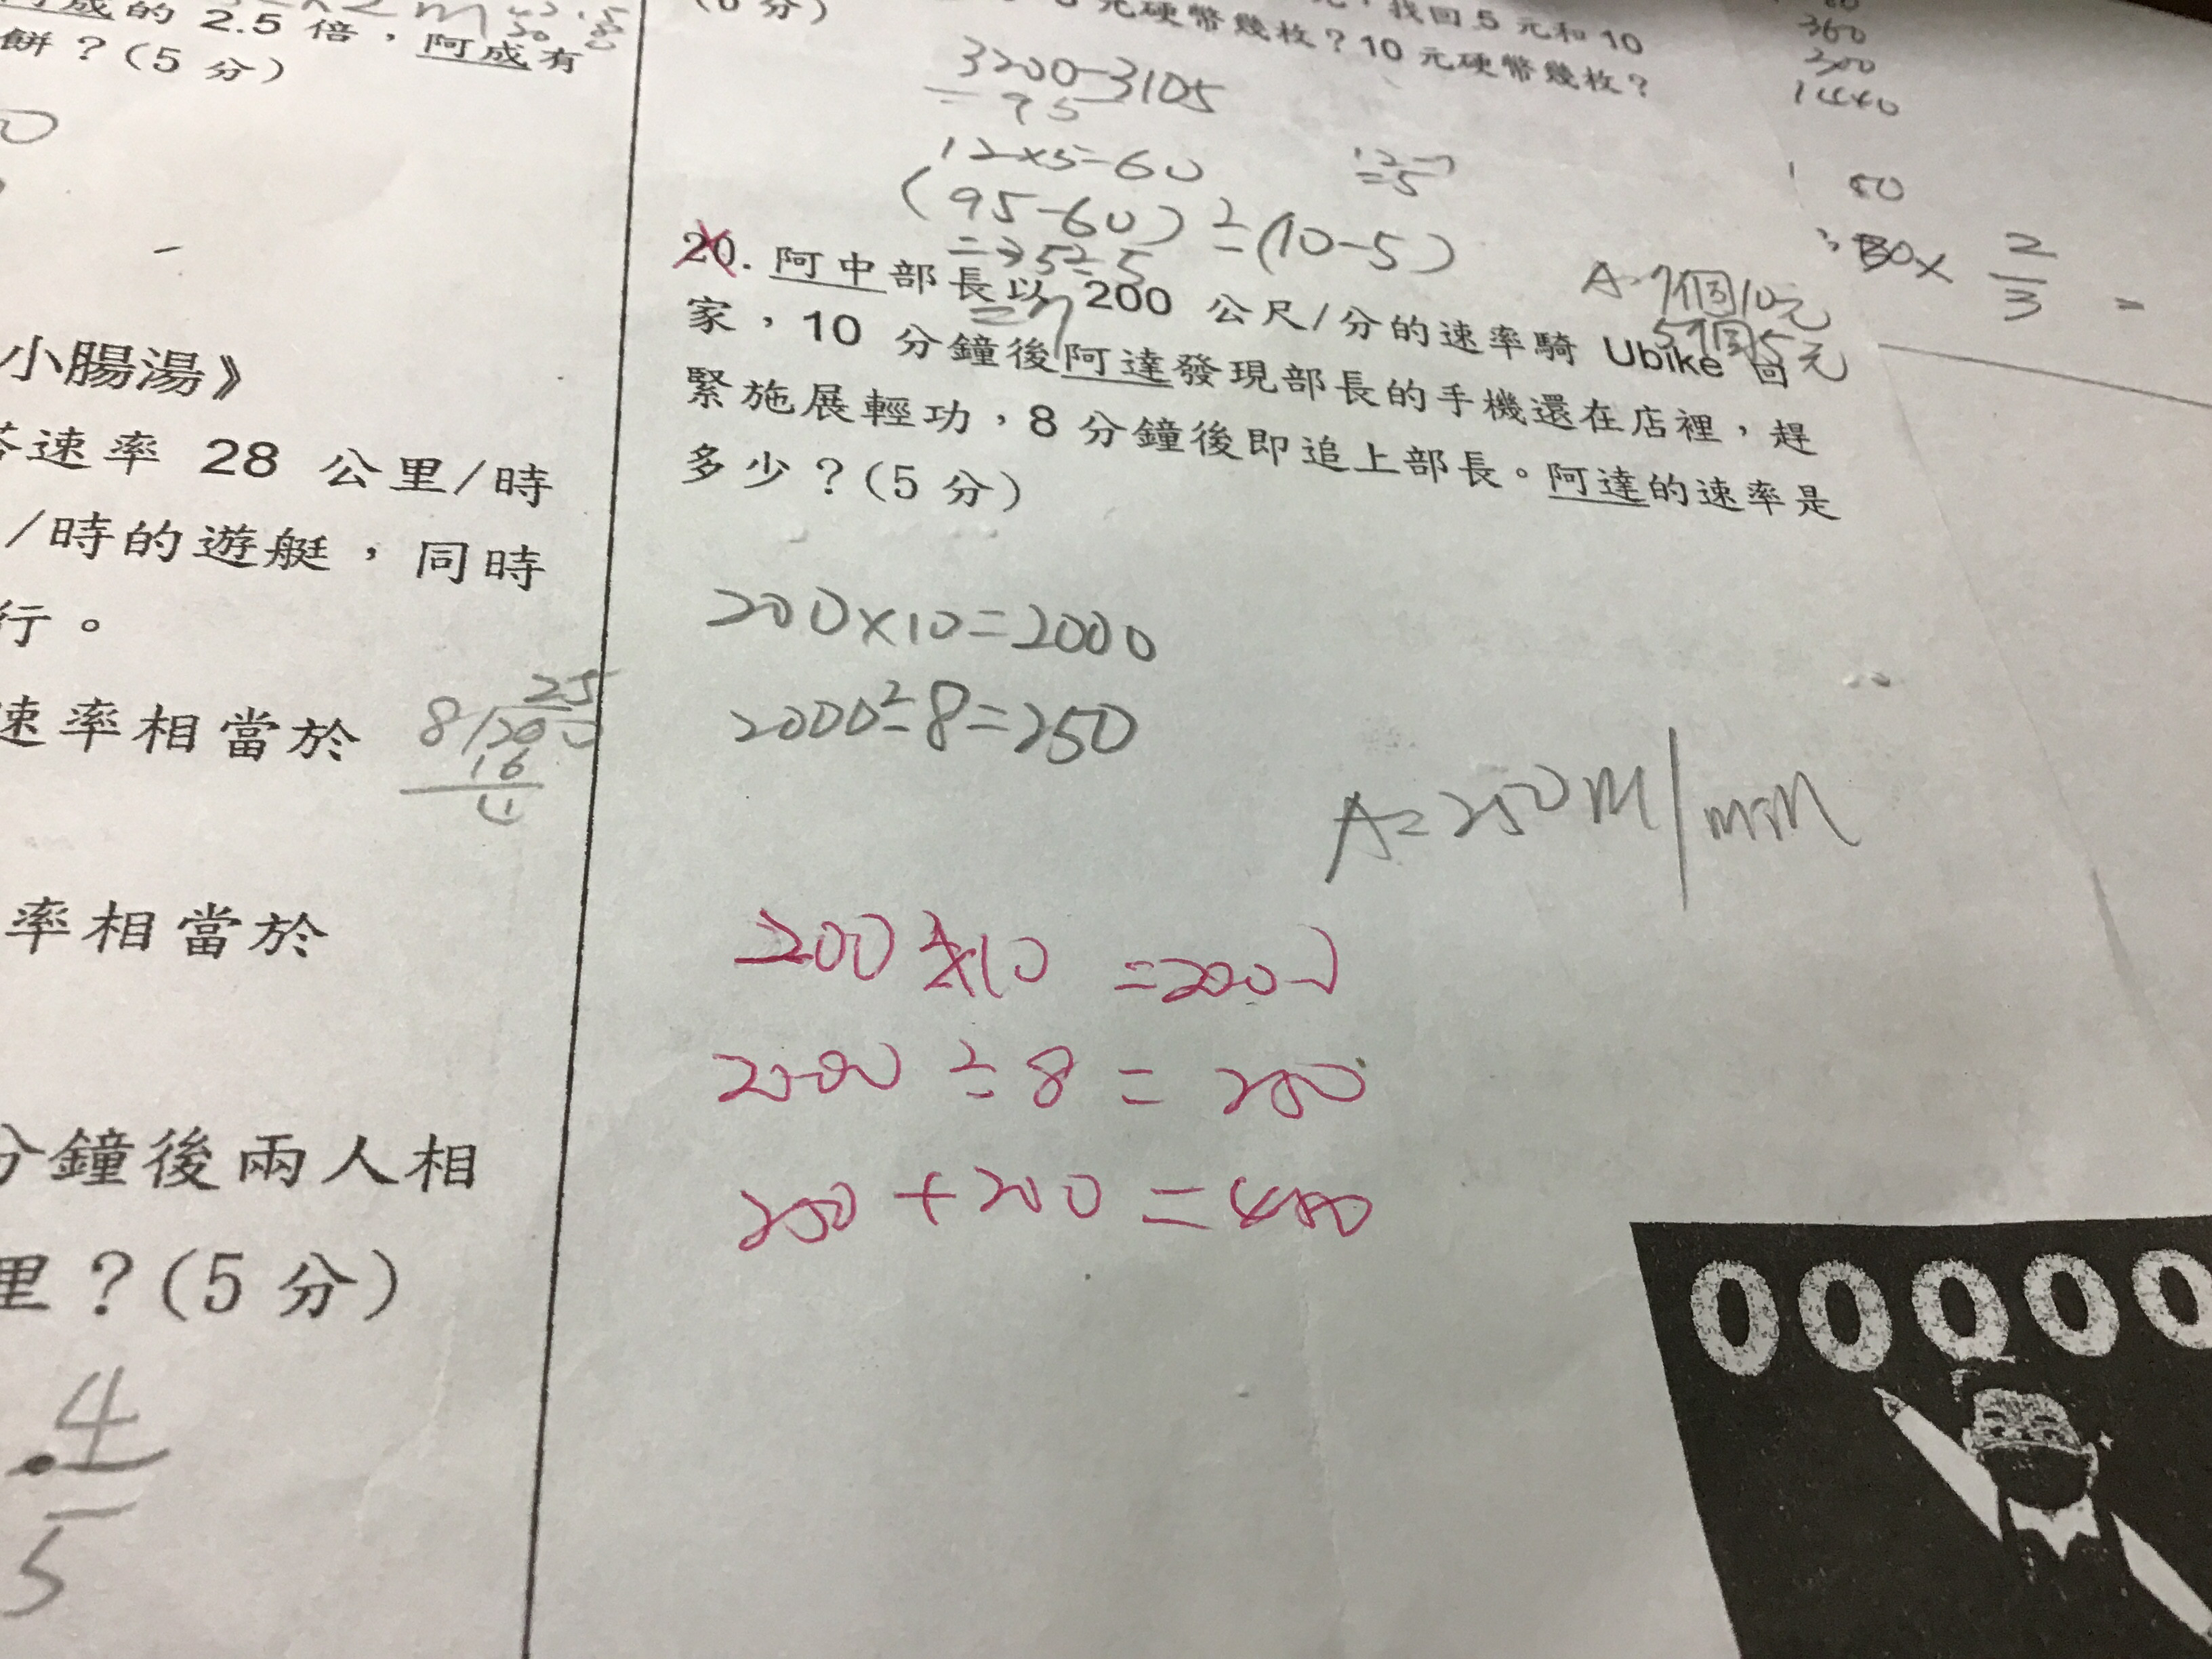 阿成的 2.5 倍，阿成有
餅？(5 分)
小腸湯》
速率 28 公里/時
/時的遊艇，同時
行。
速率相當於
25
8/200
16
4
率相當於
分鐘後兩人相
里？(5 分)
4
5
分)
找回 5 元和 10
元硬幣幾枚？10 元硬幣幾枚？
3200-3105
=95
12×5=60
12-7
=5
(95-60)÷(10-5)
=35÷5
=7
A=7個10元
5個5元
360
200
1440
80
2
3
=
20. 阿中部長以 200 公尺/分的速率騎 Ubike 回
家，10 分鐘後阿達發現部長的手機還在店裡，趕
緊施展輕功，8 分鐘後即追上部長。阿達的速率是
多少？(5 分)
200×10=2000
2000÷8=250
A=250m/min
200×10=2000
2000÷8=250
250+200=450
00000